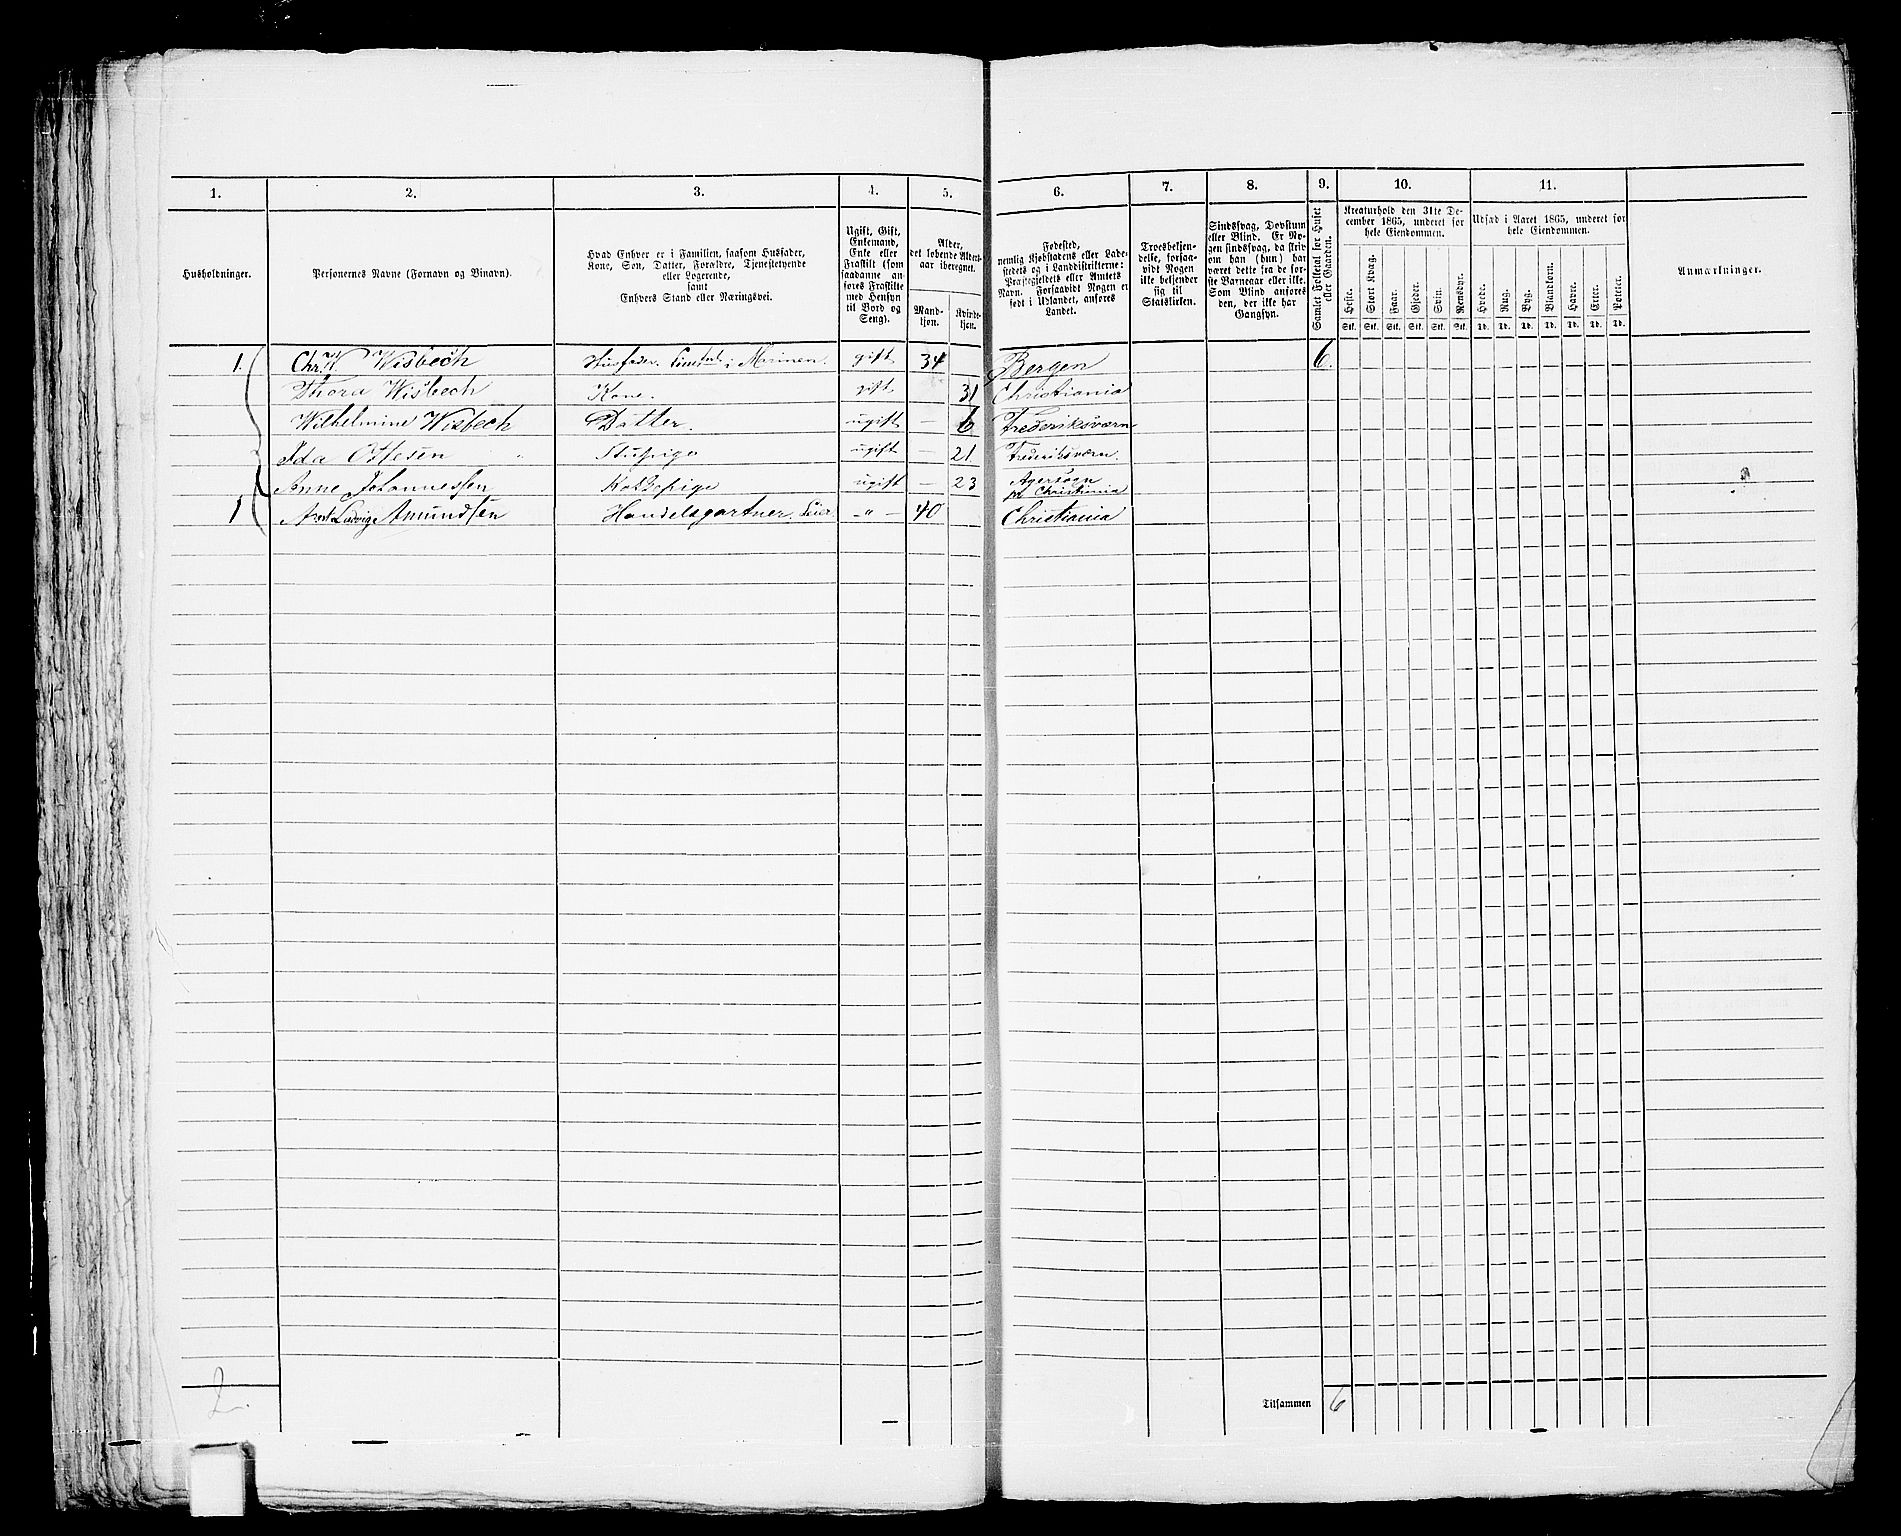 1. 2. 3. 4. 5. 6. 7. 8. 9. 10. 11.
Husholdninger.
Personernes Navne (Fornavn og Binavn).
Hvad Enhver er i Familien, saasom Husfader,
Kone, Søn, Datter, Forældre, Tjenestetyende
eller Logerende,
samt
Enhvers Stand eller Næringsvei.
Ugift, Gift,
Enkemand,
Enke eller
Fraskilt (som
saadanne an-
føres Fraskilte
med Hensyn
til Bord og
Seng).
Alder,
det løbende Alders-
aar iberegnet.
Mand-
kjøn.
Kvinde-
kjøn.
Fødested,
nemlig Kjøbstadens eller Lade-
stedets og i Landdistrikterne:
Præstegjeldets eller Amtets
Navn. Forsaavidt Nogen er
født i Udlandet, anføres
Landet.
Troesbekjen-
delse, forsaa-
vidt Nogen
ikke bekjender
sig til
Statskirken.
Sindssvag, Døvstum
eller Blind. Er No-
gen sindssvag, da skriv
om han (hun) har
været dette fra de før-
ste Barneaar eller ikke.
Som Blind anføres
den, der ikke har
Gangsyn.
Samlet Folketal for Huset
eller Gaarden.
Kreaturhold den 31te De-
cember 1865, underet for
hele Eiendommen.
Heste. Stort Kvæg. Faar. Gjeder. Svin. Rensdyr.
Stk. Stk. Stk. Stk. Stk. Stk.
Udsæd i Aaret 1865, underet for
hele Eiendommen.
Hvede. Rug. Byg. Blandkorn. Havre. Erter. Poteter.
Td. Td. Td. Td. Td. Td. Td.
Anmærkninger.
1. Chr. W. Wisbech Husfader. i Marinen. gift 34 Bergen 6.
Thora Wisbech Kone. gift 31 Christiania
Wilhelmine Wisbech Datter. ugift — 6 Frederiksværn
Ida Ottesen Stupige ugift — 21 Frederiksværn.
Anne Johannessen Kokkepige ugift — 23 Agersogn
pr Christiania
1 Ludvig Amundsen Handelsgartner. Leier —"— 40 Christiania
2. Tilsammen 6